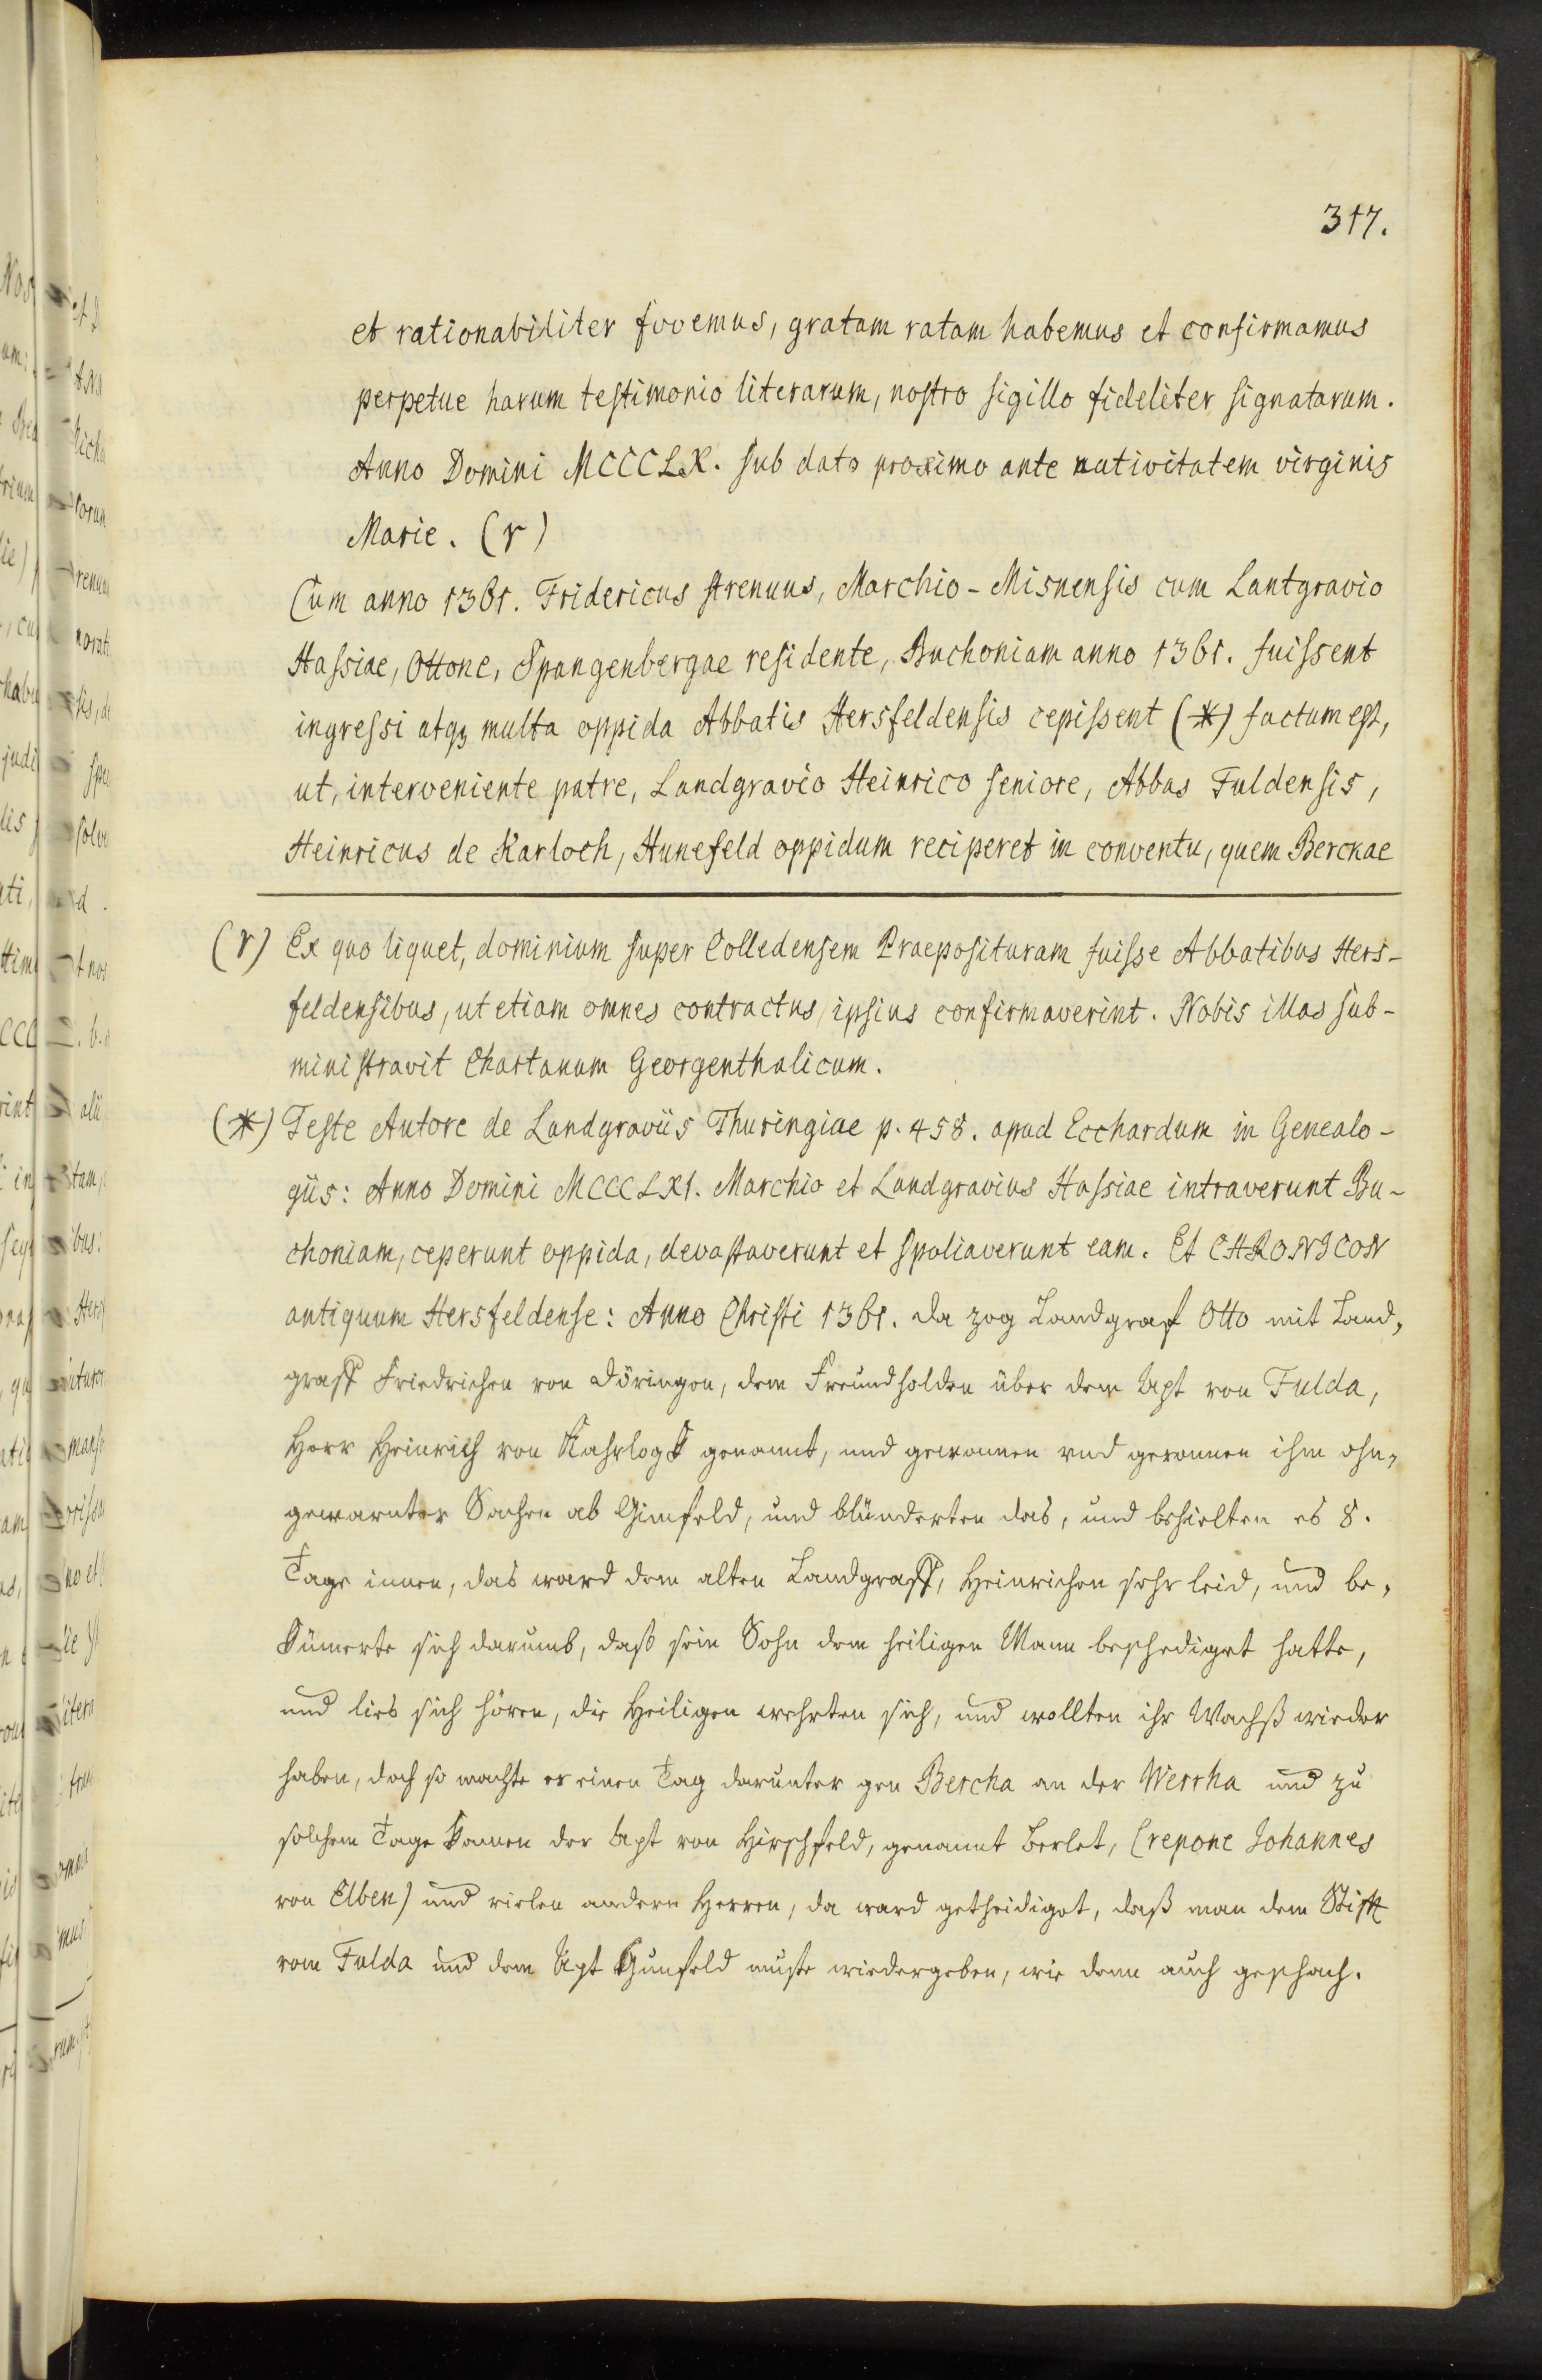 317.
et rationabiliter fovemus, gratam ratam habemus et confirmamus
perpetue harum testimonio literarum, nostro sigillo fideliter signatarum.
Anno Domini MCCCLX. sub dato proximo ante nativitatem virginis
Marie. (r)
Cum anno 1361. Fridericus strenuus, Marchio-Misnensis cum Lantgravio
Hassiae, Ottone, Spangenbergae residente, Buchoniam anno 1361. fuissent
ingressi atqz multa oppida Abbatis Hersfeldensis cepissent (*) factum est,
ut, interveniente patre, Landgravio Heinrico seniore, Abbas Fuldensis,
Heinricus de Karloch, Hunefeld oppidum reciperet in conventu, quem Berckae
(r) Ex quo liquet, dominium super Colledensem Praeposituram fuisse Abbatibus Hers-
feldensibus, ut etiam omnes contractus ipsius confirmaverint. Nobis illas sub-
ministravit Chartanum Georgenthalicum.
(*) Teste Autore de Landgraviis Thuringiae p. 458. apud Ecchardum in Genealo-
giis: Anno Domini MCCCLXI. Marchio et Landgravius Hassiae intraverunt Bu-
choniam, ceperunt oppida, devastaverunt et spoliaverunt eam. Et CHRONICON
antiquum Hersfeldense: Anno Christi 1361. da zog Landgraf Otto mit Land-
graff Friedrichen von Düringen, dem Freundholden über dem Apt von Fulda,
Herr Heinrich von Kahrlogk genannt, und gewonnen vnd gewonnen ihm ohn-
gewarnter Sachen ab Hunfeld, und blünderten das, und behielten es 8.
Tage innen, das ward dem alten Landgraff, Heinrichen sehr leid, und be-
kümerte sich darumb, daß sein Sohn dem heiligen Mann beschediget hatte,
und lies sich hören, die Heiligen wehrten sich, und wollten ihr Wachß wieder
haben, doch so machte er einen Tag darunter gen Bercha an der Werrha und zu
solchem Tage kamen der Apt von Hirschfeld, genannt Berlet, (repone Johannes
von Elben) und vielen andern Herren, da ward getheidiget, daß man dem Stifft
vom Fulda und dem Apt Hunfeld muste wiedergeben, wie denn auch geschach.